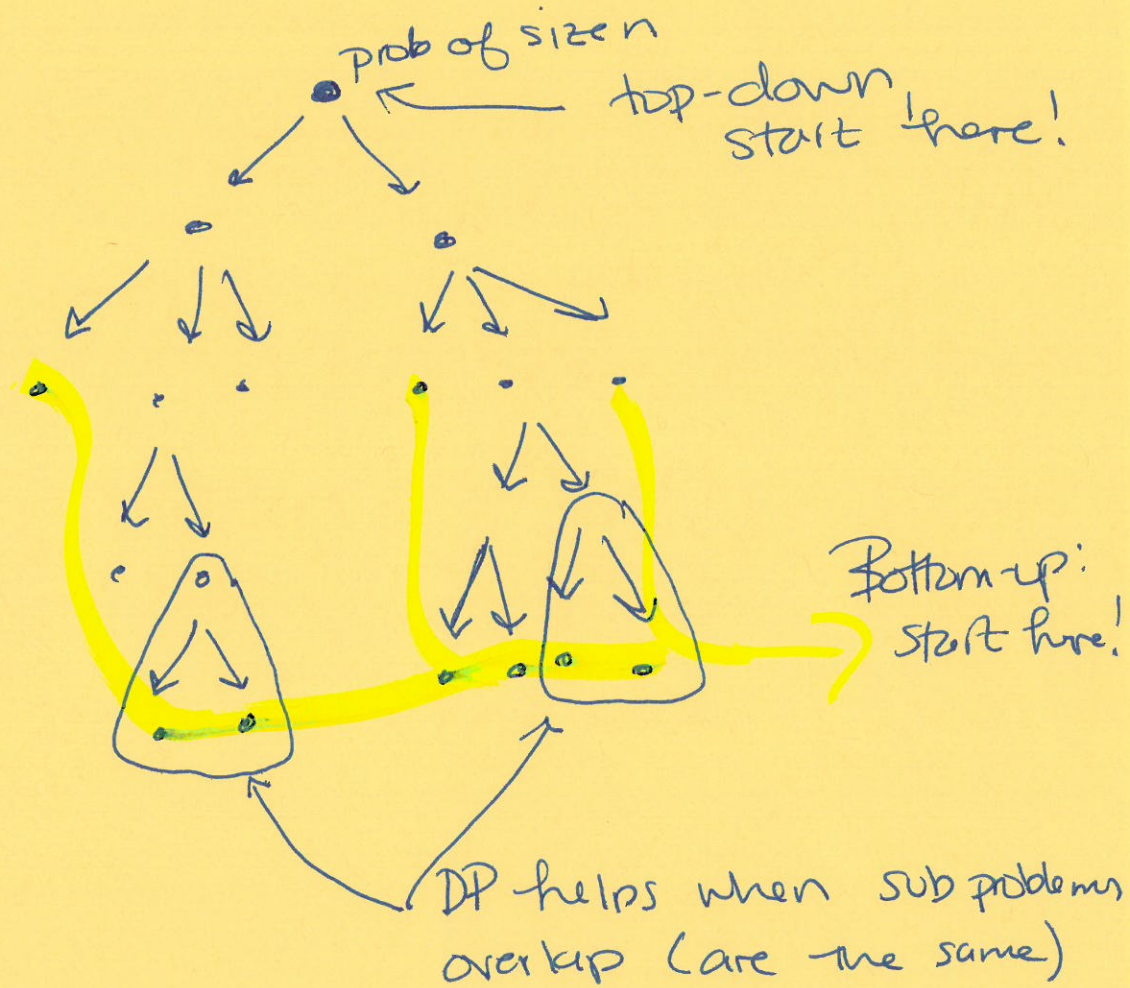 prob of size n
top-down
start here!
Bottom-up:
start here!
DP helps when subproblems
overlap (are the same)